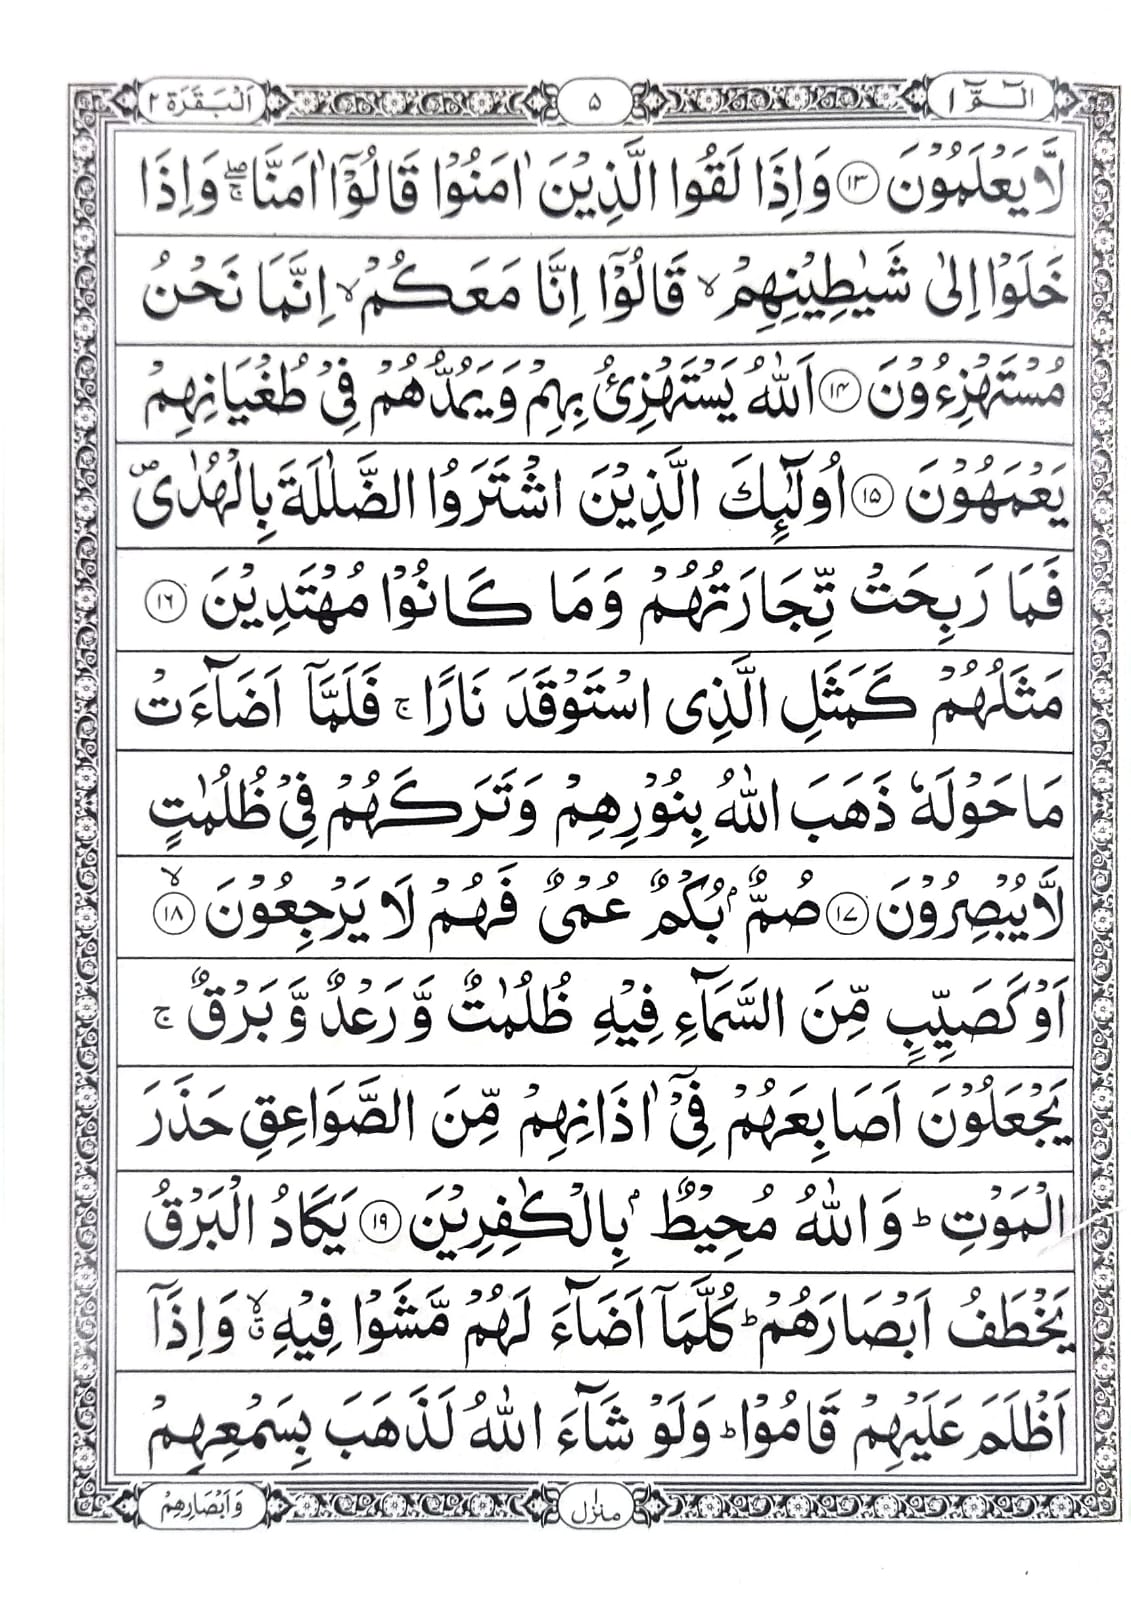 الٓمّٓ ١
٥
اَلْبَقَرَة ٢
لَّا يَعْلَمُوْنَ ۝۱۳ وَاِذَا لَقُوا الَّذِيْنَ اٰمَنُوْا قَالُوْٓا اٰمَنَّا ۚۖ وَاِذَا
خَلَوْا اِلٰى شَيٰطِيْنِهِمْ ۙ قَالُوْٓا اِنَّا مَعَكُمْ ۙ اِنَّمَا نَحْنُ
مُسْتَهْزِءُوْنَ ۝۱۴ اَللّٰهُ يَسْتَهْزِئُ بِهِمْ وَيَمُدُّهُمْ فِيْ طُغْيَانِهِمْ
يَعْمَهُوْنَ ۝۱۵ اُولٰٓئِكَ الَّذِيْنَ اشْتَرَوُا الضَّلٰلَةَ بِالْهُدٰى ۪
فَمَا رَبِحَتْ تِّجَارَتُهُمْ وَمَا كَانُوْا مُهْتَدِيْنَ ۝۱۶
مَثَلُهُمْ كَمَثَلِ الَّذِى اسْتَوْقَدَ نَارًا ۚ فَلَمَّآ اَضَآءَتْ
مَا حَوْلَهٗ ذَهَبَ اللّٰهُ بِنُوْرِهِمْ وَتَرَكَهُمْ فِيْ ظُلُمٰتٍ
لَّا يُبْصِرُوْنَ ۝۱۷ صُمٌّۢ بُكْمٌ عُمْىٌ فَهُمْ لَا يَرْجِعُوْنَ ۝۱۸ ۙ
اَوْ كَصَيِّبٍ مِّنَ السَّمَآءِ فِيْهِ ظُلُمٰتٌ وَّرَعْدٌ وَّبَرْقٌ ۚ
يَجْعَلُوْنَ اَصَابِعَهُمْ فِيْٓ اٰذَانِهِمْ مِّنَ الصَّوَاعِقِ حَذَرَ
الْمَوْتِ ؕ وَاللّٰهُ مُحِيْطٌۢ بِالْكٰفِرِيْنَ ۝۱۹ يَكَادُ الْبَرْقُ
يَخْطَفُ اَبْصَارَهُمْ ؕ كُلَّمَآ اَضَآءَ لَهُمْ مَّشَوْا فِيْهِ ۙۗ وَاِذَآ
اَظْلَمَ عَلَيْهِمْ قَامُوْا ؕ وَلَوْ شَآءَ اللّٰهُ لَذَهَبَ بِسَمْعِهِمْ
منزل ١
وَاَبْصَارِهِمْ